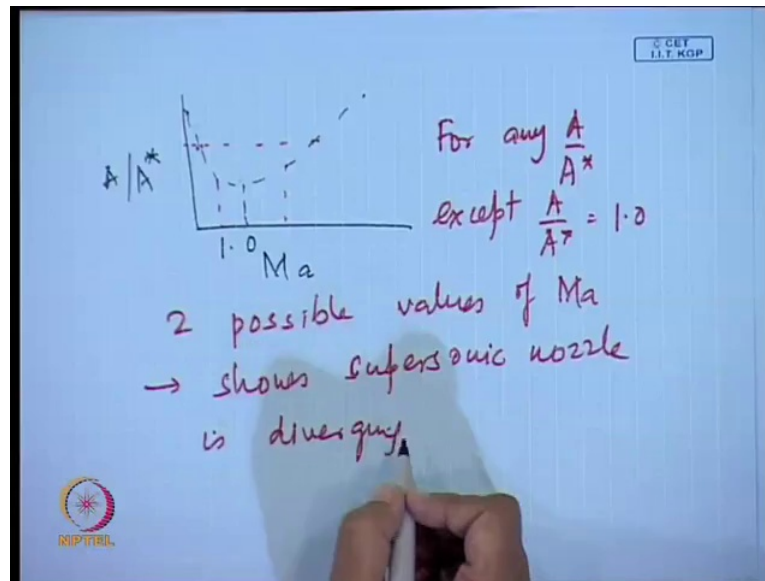 © CET
I.I.T. KGP
A/A*
1.0
Ma
For any A/A*
except A/A* = 1.0
2 possible values of Ma
→ shows supersonic nozzle
is diverging
NPTEL